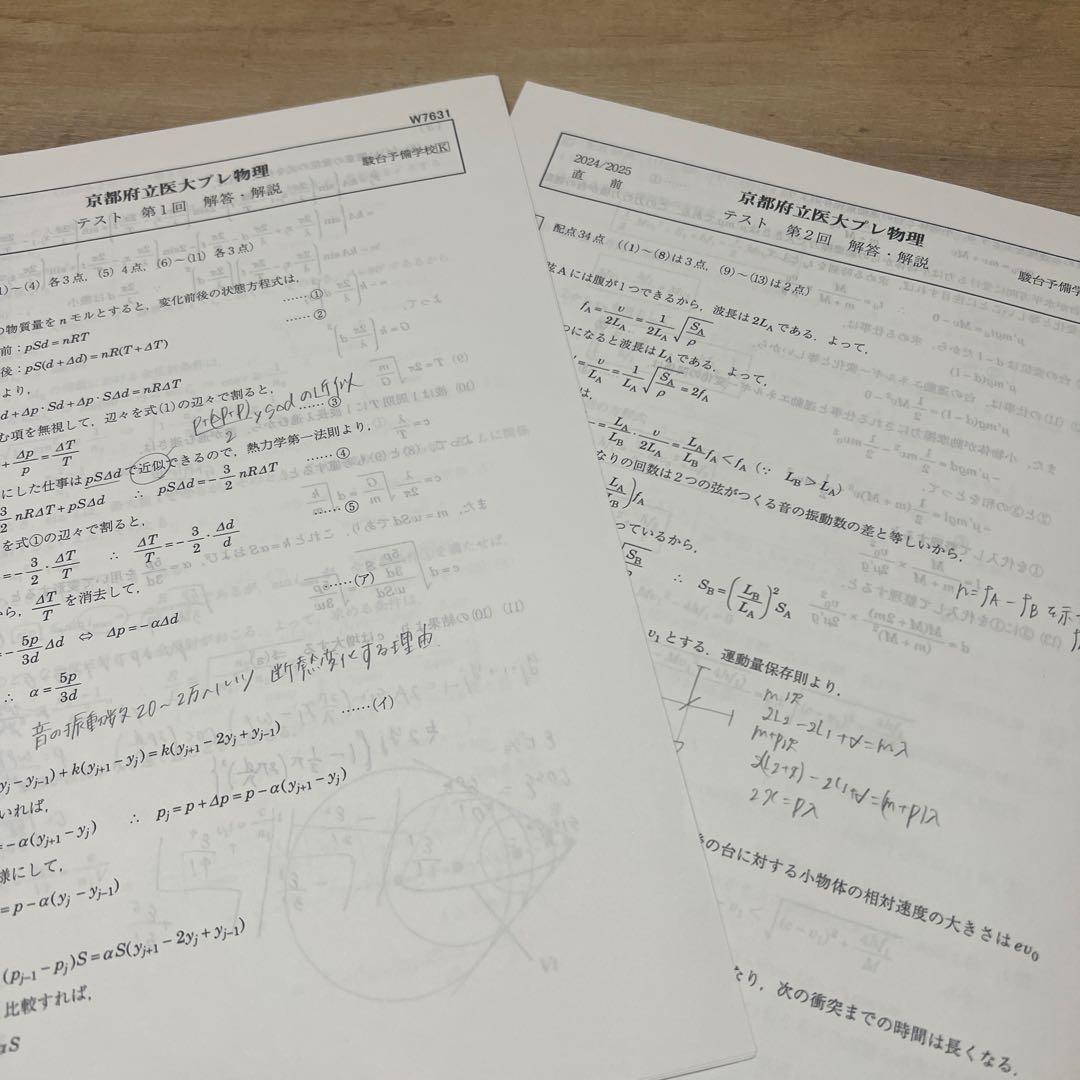 W7631
京都府立医大プレ物理
駿台予備学校K
テスト 第1回 解答・解説
)~(4) 各3点, (5) 4点, (6)~(11) 各3点)
の物質量をnモルとすると,変化前後の状態方程式は,
前:pSd=nRT ……①
後:pS(d+Δd)=nR(T+ΔT) ……②
より,
d+Δp·Sd+Δp·SΔd=nRΔT
む項を無視して,辺々を式①の辺々で割ると,
+Δp/p=ΔT/T ……③
の近似
にした仕事はpSΔdで近似できるので,熱力学第一法則より,
3/2 nRΔT+pSΔd ∴ pSΔd=-3/2 nRΔT ……④
を式①の辺々で割ると,
=-3/2·ΔT/T ∴ ΔT/T=-2/3·Δd/d ……⑤
から, ΔT/T を消去して,
=-5p/3d Δd ⇔ Δp=-αΔd ……(ア)
∴ α=5p/3d
音の振動数20~2万ヘルツ 断熱変化する理由
……(イ)
y_j-y_{j-1})+k(y_{j+1}-y_j)=k(y_{j+1}-2y_j+y_{j-1})
いれば,
=-α(y_{j+1}-y_j) ∴ p_j=p+Δp=p-α(y_{j+1}-y_j)
様にして,
=p-α(y_j-y_{j-1})
(p_{j-1}-p_j)S=αS(y_{j+1}-2y_j+y_{j-1})
比較すれば,
αS
2024/2025
直 前
京都府立医大プレ物理
テスト 第2回 解答・解説
駿台予備学
配点34点 ((1)~(8)は3点, (9)~(13)は2点)
弦Aには腹が1つできるから,波長は2L_Aである.よって,
f_A=υ/2L_A=1/2L_A √(S_A/ρ)
つになると波長はL_Aである.よって,
=υ/L_A=1/L_A √(S_A/ρ)=2f_A
は,
=L_A/L_B·υ/2L_A=L_A/L_B f_A<f_A (∵ L_B>L_A)
なりの回数は2つの弦がつくる音の振動数の差と等しいから.
L_A/L_B)f_A
n=f_A-f_B を示
っているから.
√(S_B/ρ) ∴ S_B=(L_B/L_A)²S_A
υ₁とする.運動量保存則より.
2L₂-2L₁+d=mλ
2(L₂+x)-2L₁+d=(m+p)λ
2x=pλ
後の台に対する小物体の相対速度の大きさはeυ₀
なり,次の衝突までの時間は長くなる.